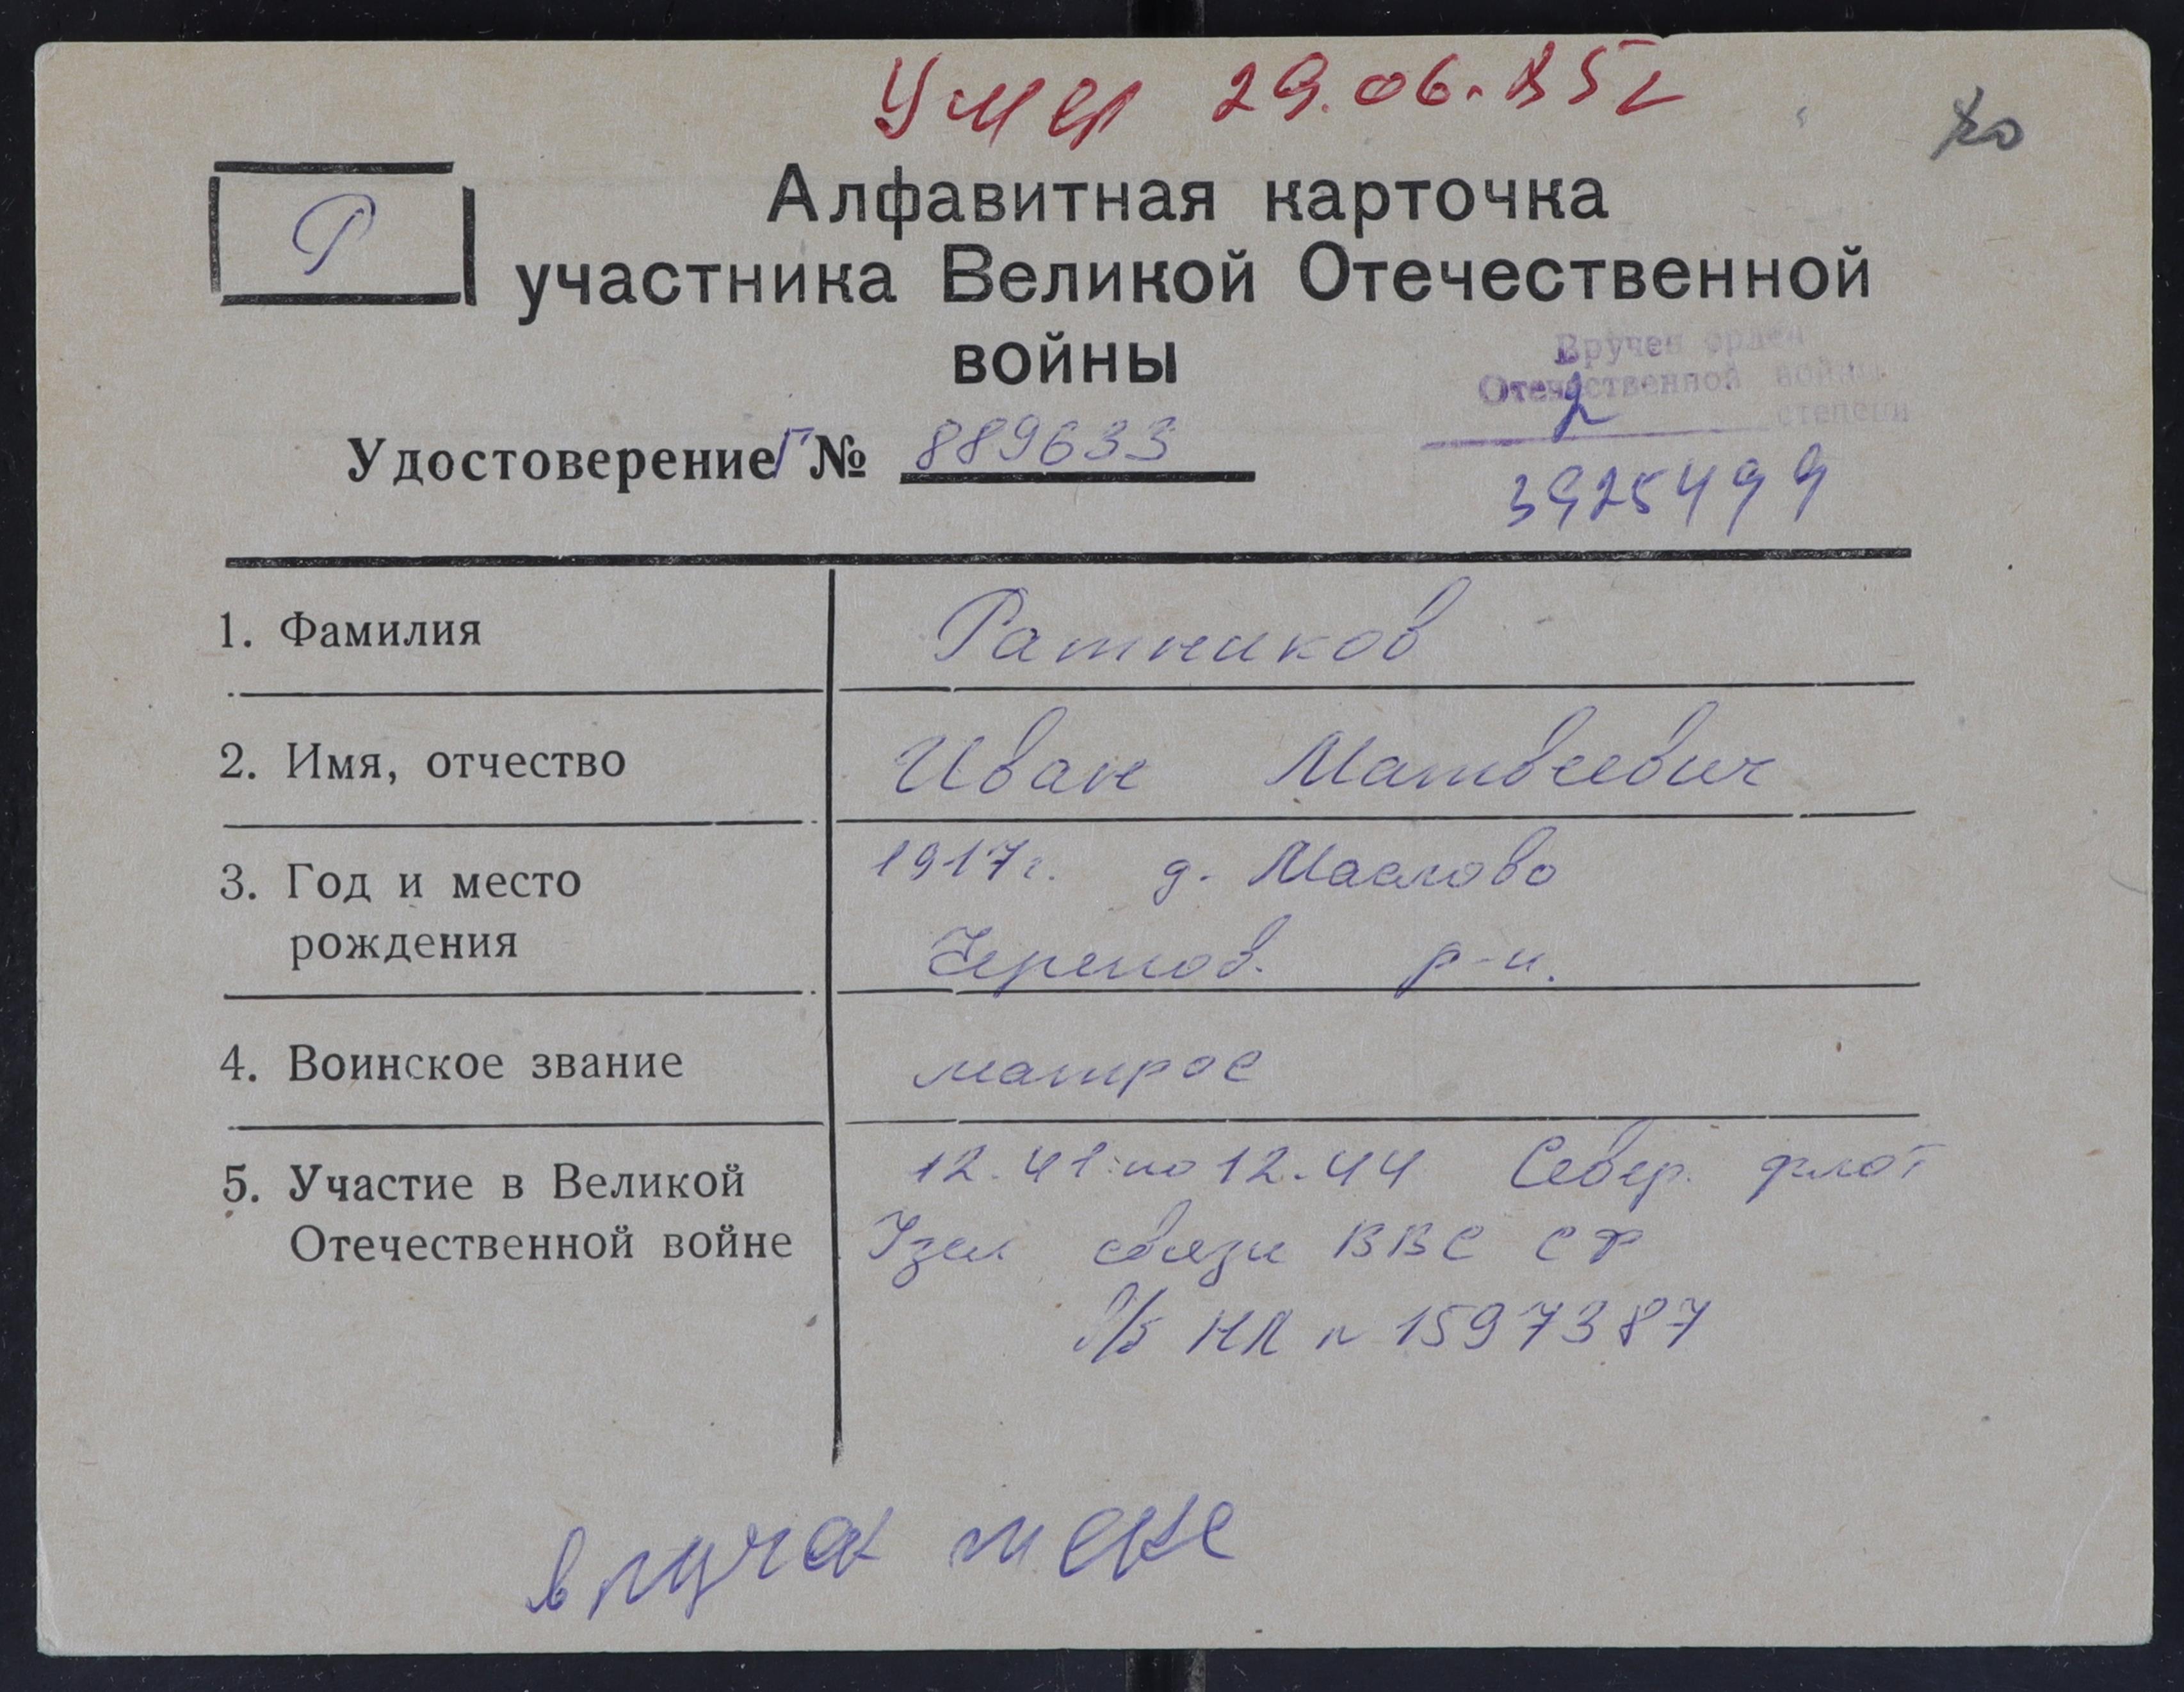 Умер 29.06.85г
Р
Алфавитная карточка
участника Великой Отечественной
войны
Вручен орден
Отечественной войны
2 степени
Удостоверение Г № 889633
3925499
1. Фамилия Ратников
2. Имя, отчество Иван Матвеевич
3. Год и место 1917г. д. Маслово
рождения Черепов. р-н.
4. Воинское звание матрос
5. Участие в Великой 12.41 по 12.44 Север. флот
Отечественной войне Узел связи ВВС СФ
В/б НЛ № 1597387
вручен жене